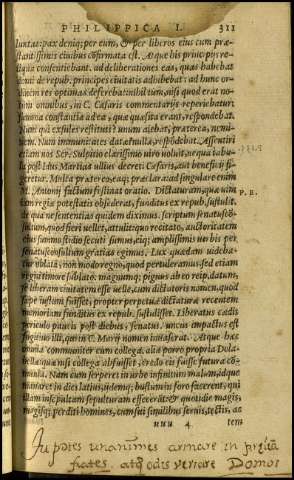 PHILIPPICA I. 311
luntas: pax deniq; per eum, & per liberos eius cum præ-
stantissimis ciuibus confirmata est. Atque his principijs re-
liqua consentiebant. ad deliberationes eas, quas habebat
domi de repub. principes ciuitatis adhibebat: ad hunc or-
dinem res optimas deferebat: nihil tum, nisi quod erat no-
tum omnibus, in C. Cæsaris commentarijs reperiebatur:
summa constantia ad ea, quæ quæsita erant, respondebat.
Num qui exsules restituti? unum aiebat, præterea, nemi-
nem. Num immunitates datæ? nullæ, respōdebat. Assentiri
etiam nos Ser. Sulpitio clarissimo uiro uoluit, ne qua tabu-
la post idus Martias ullius decreti Cæsaris, aut beneficij fi-
geretur. Multa prætereo, eaq; præclara: ad singulare enim
M. Antonij factum festinat oratio. Dictaturam, quæ uim
iam regiæ potestatis obsederat, funditus ex repub. sustulit.
de qua ne sententias quidem diximus. scriptum senatuscōn-
sultum, quod fieri uellet, attulit: quo recitato, auctoritatem
eius summo studio secuti sumus, eiq; amplissimis uerbis per
senatuscōsultum gratias egimus. Lux quædam uideba-
tur oblata, non modo regno, quod pertuleramus, sed etiam
regni timore sublato: magnumq; pignus ab eo reip. datum,
se liberam ciuitatem esse uelle, cum dictatoris nomen, quod
sæpe iustum fuisset, propter perpetuæ dictaturæ recentem
memoriam funditus ex repub. sustulisset. Liberatus cædis
periculo paucis post diebus, senatus. uncus impactus est
fugitiuo illi, qui in C. Marij nomen inuaserat. Atque hæc
omnia communiter cum collega. alia porro propria Dola-
bellæ: quæ nisi collega abfuisset, credo eis fuisse futura com-
munia. Nam cum serperet in urbe infinitum malum, idque
manaret in dies latius, iidemq; bustum in foro facerent, qui
illam insepultam sepulturam effecerāt: & quotidie magis,
magisq; perditi homines, cum sui similibus seruis, tectis, ac
P. R.
uuu 4 tem
Tu potes unanimes armare in prælia
fratres. atq; odijs versare Domos